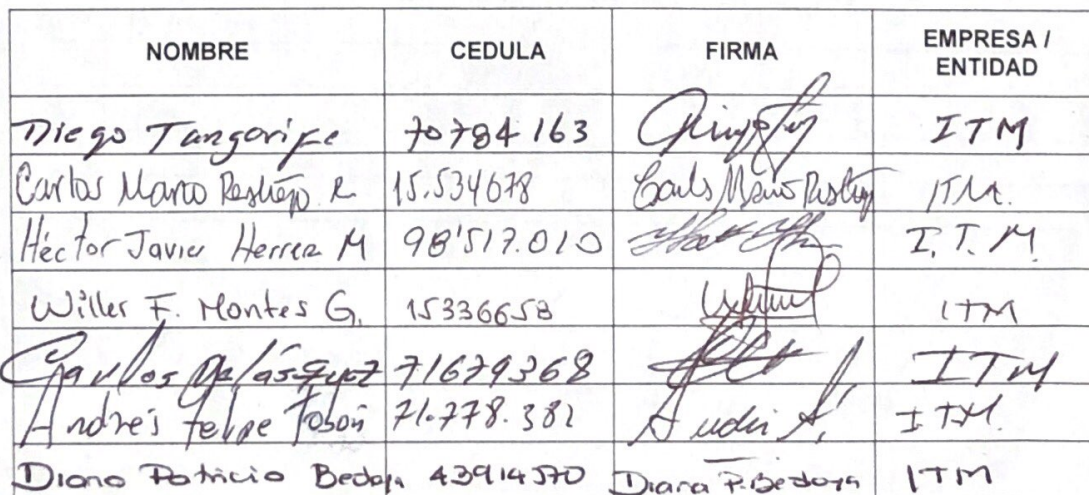 NOMBRE CEDULA FIRMA EMPRESA / ENTIDAD
Diego Tangarife 70784163 ITM
Carlos Mario Restrepo R 15.534078 Carlos Mario Restrepo ITM.
Héctor Javier Herrera M 98'517.010 I.T.M.
Willer F. Montes G. 15336658 ITM
Carlos Velásquez 71679368 ITM
Andrés Felipe Tobón 71.778.382 ITM.
Diana Patricia Bedoya 43914570 Diana P. Bedoya ITM